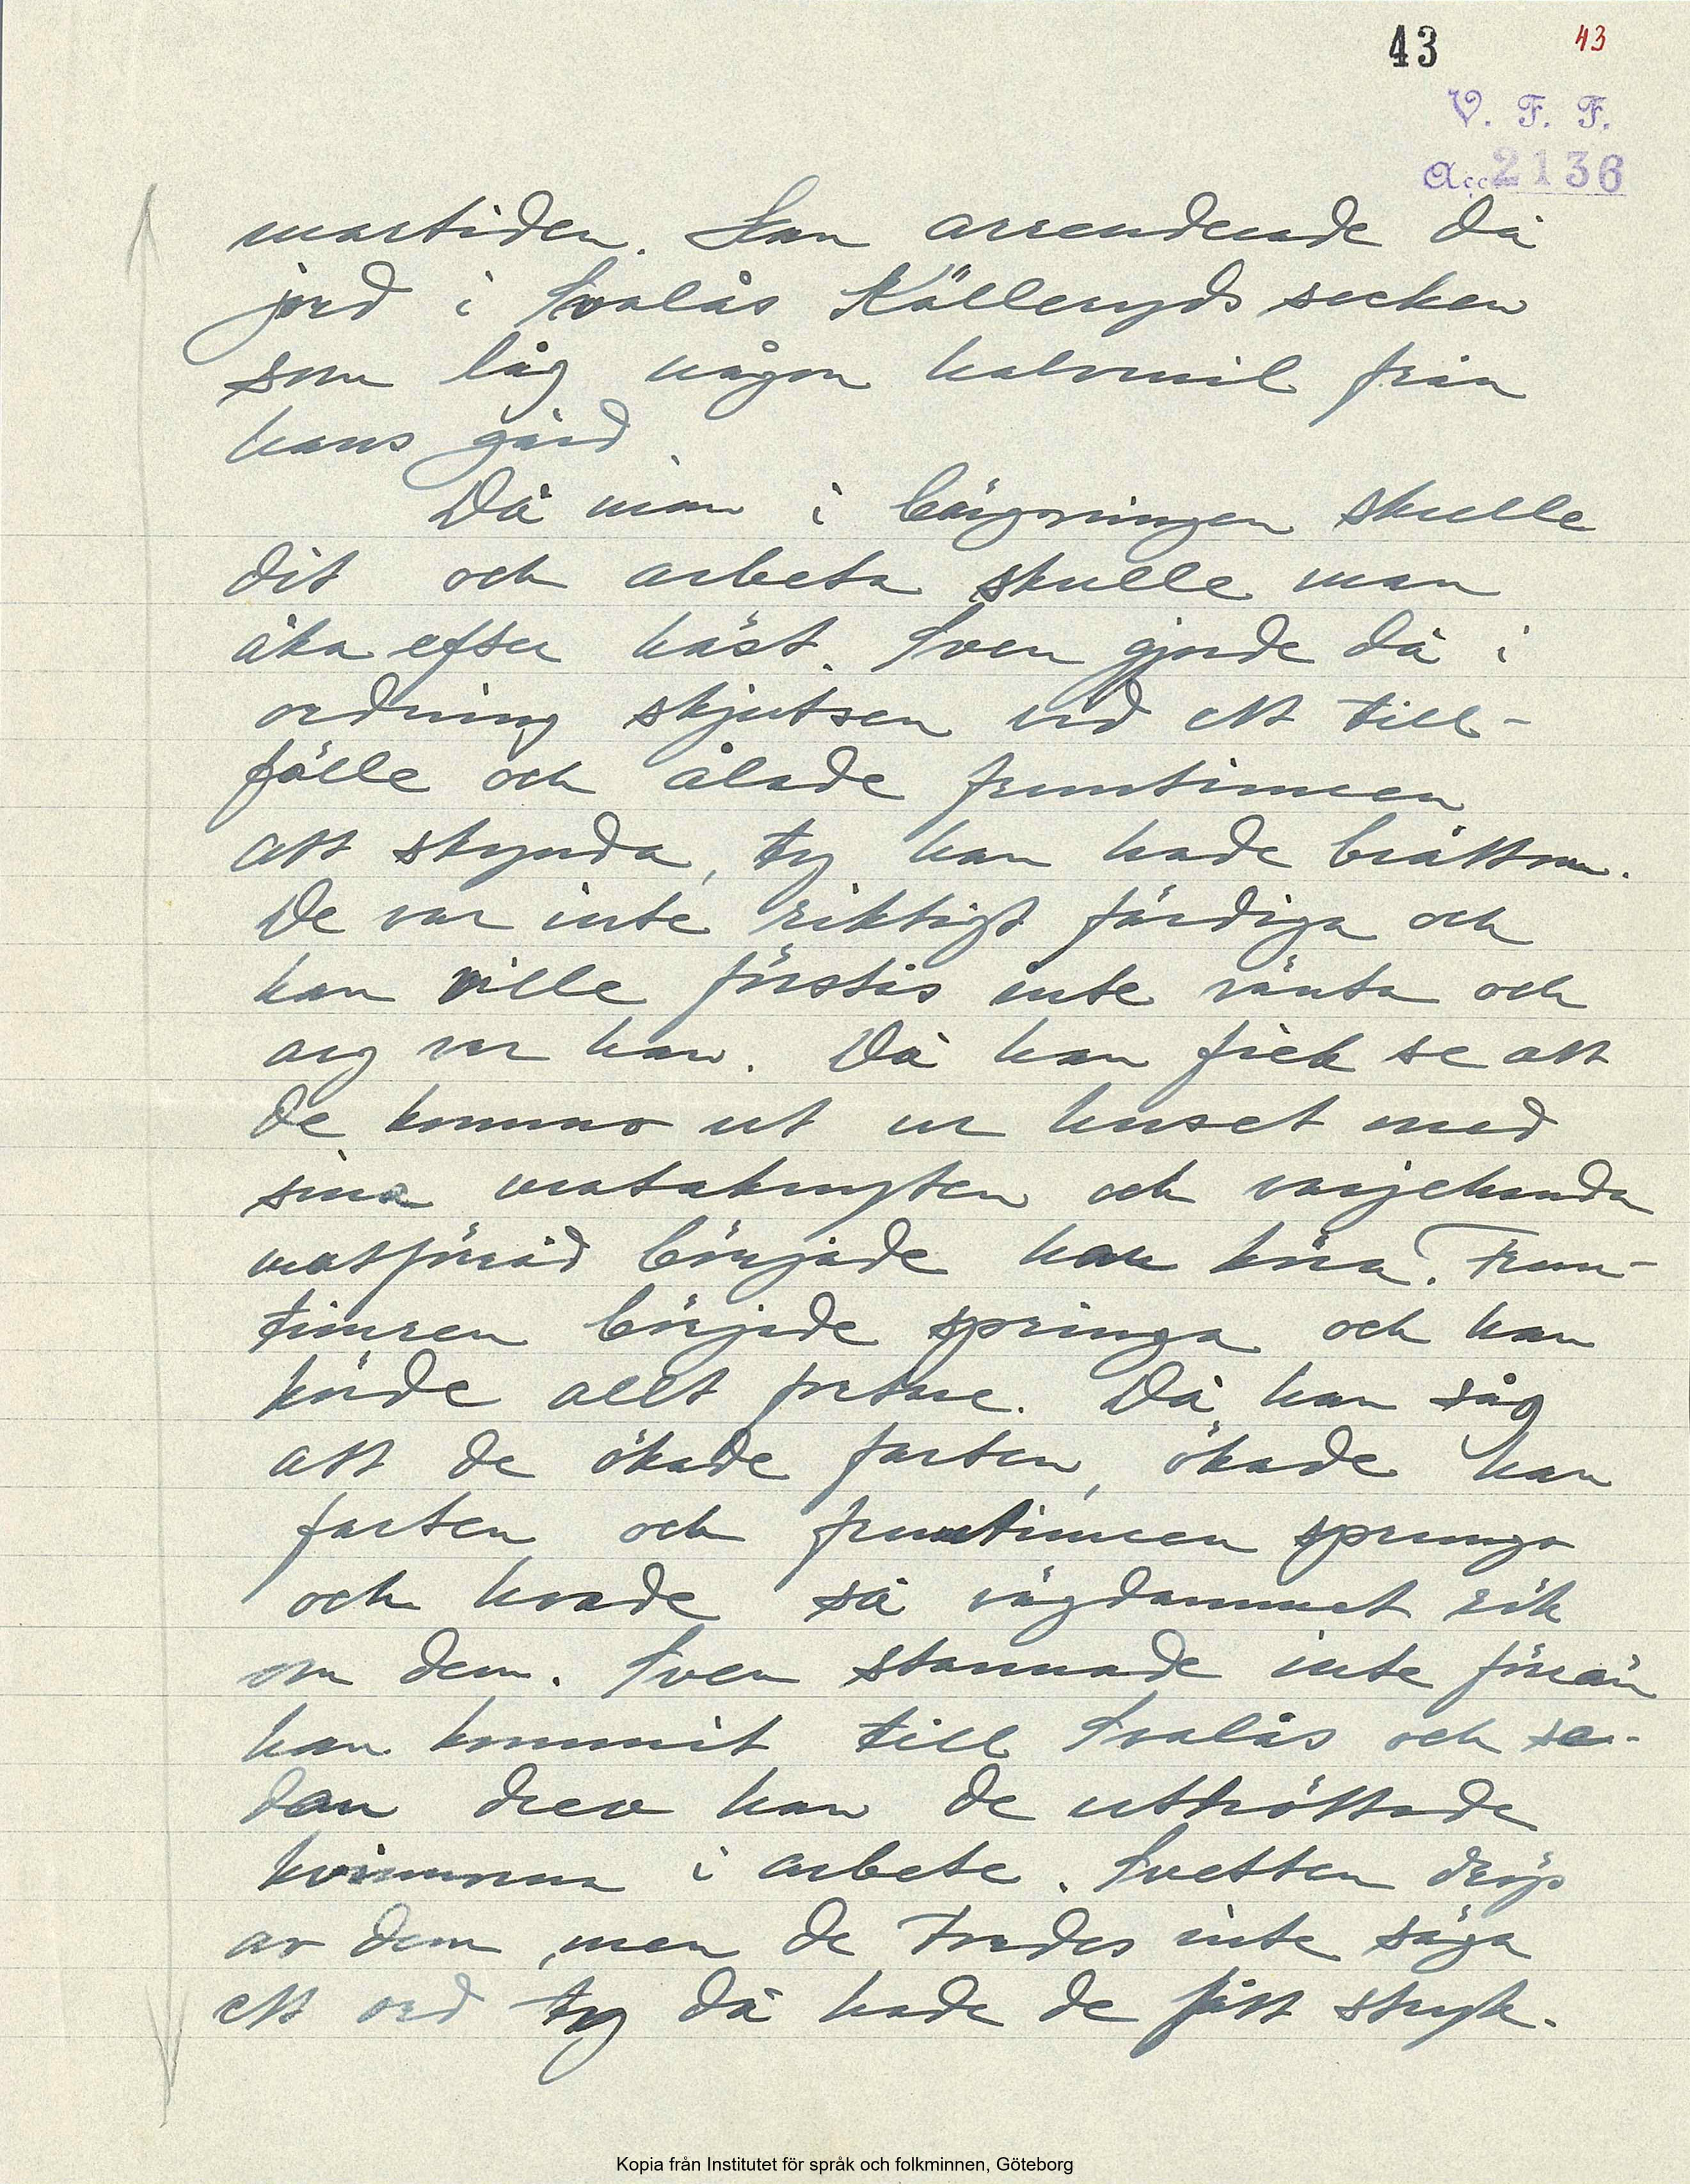 43 43
V. F. F.
Acc 2136
martiden. Han arrenderade då
jord i Svalås Källeryds socken
som låg någon halvmil från
hans gård
Då man i bärgningen skulle
dit och arbeta skulle man
åka efter häst. Sven gjorde då i
ordning skjutsen vid ett till-
fälle och ålade fruntimren
att skynda, ty han hade bråttom.
De var inte riktigt färdiga och
han ville förstås inte vänta och
arg var han. Då han fick se att
de kommo ut ur huset med
sina mataknyten och varjehanda
matförråd började han köra. Frun-
timren började springa och han
körde allt fortare. Då han såg
att de ökade farten, ökade han
farten och fruntimren sprungo
och kvade så vägdammet rök
om dem. Sven stannade inte förrän
han kommit till Svalås och se-
dan drev han de uttröttade
kvinnorna i arbete. Svetten dröp
av dem, men de tordes inte säga
ett ord ty då hade de fått stryk.
Kopia från Institutet för språk och folkminnen, Göteborg